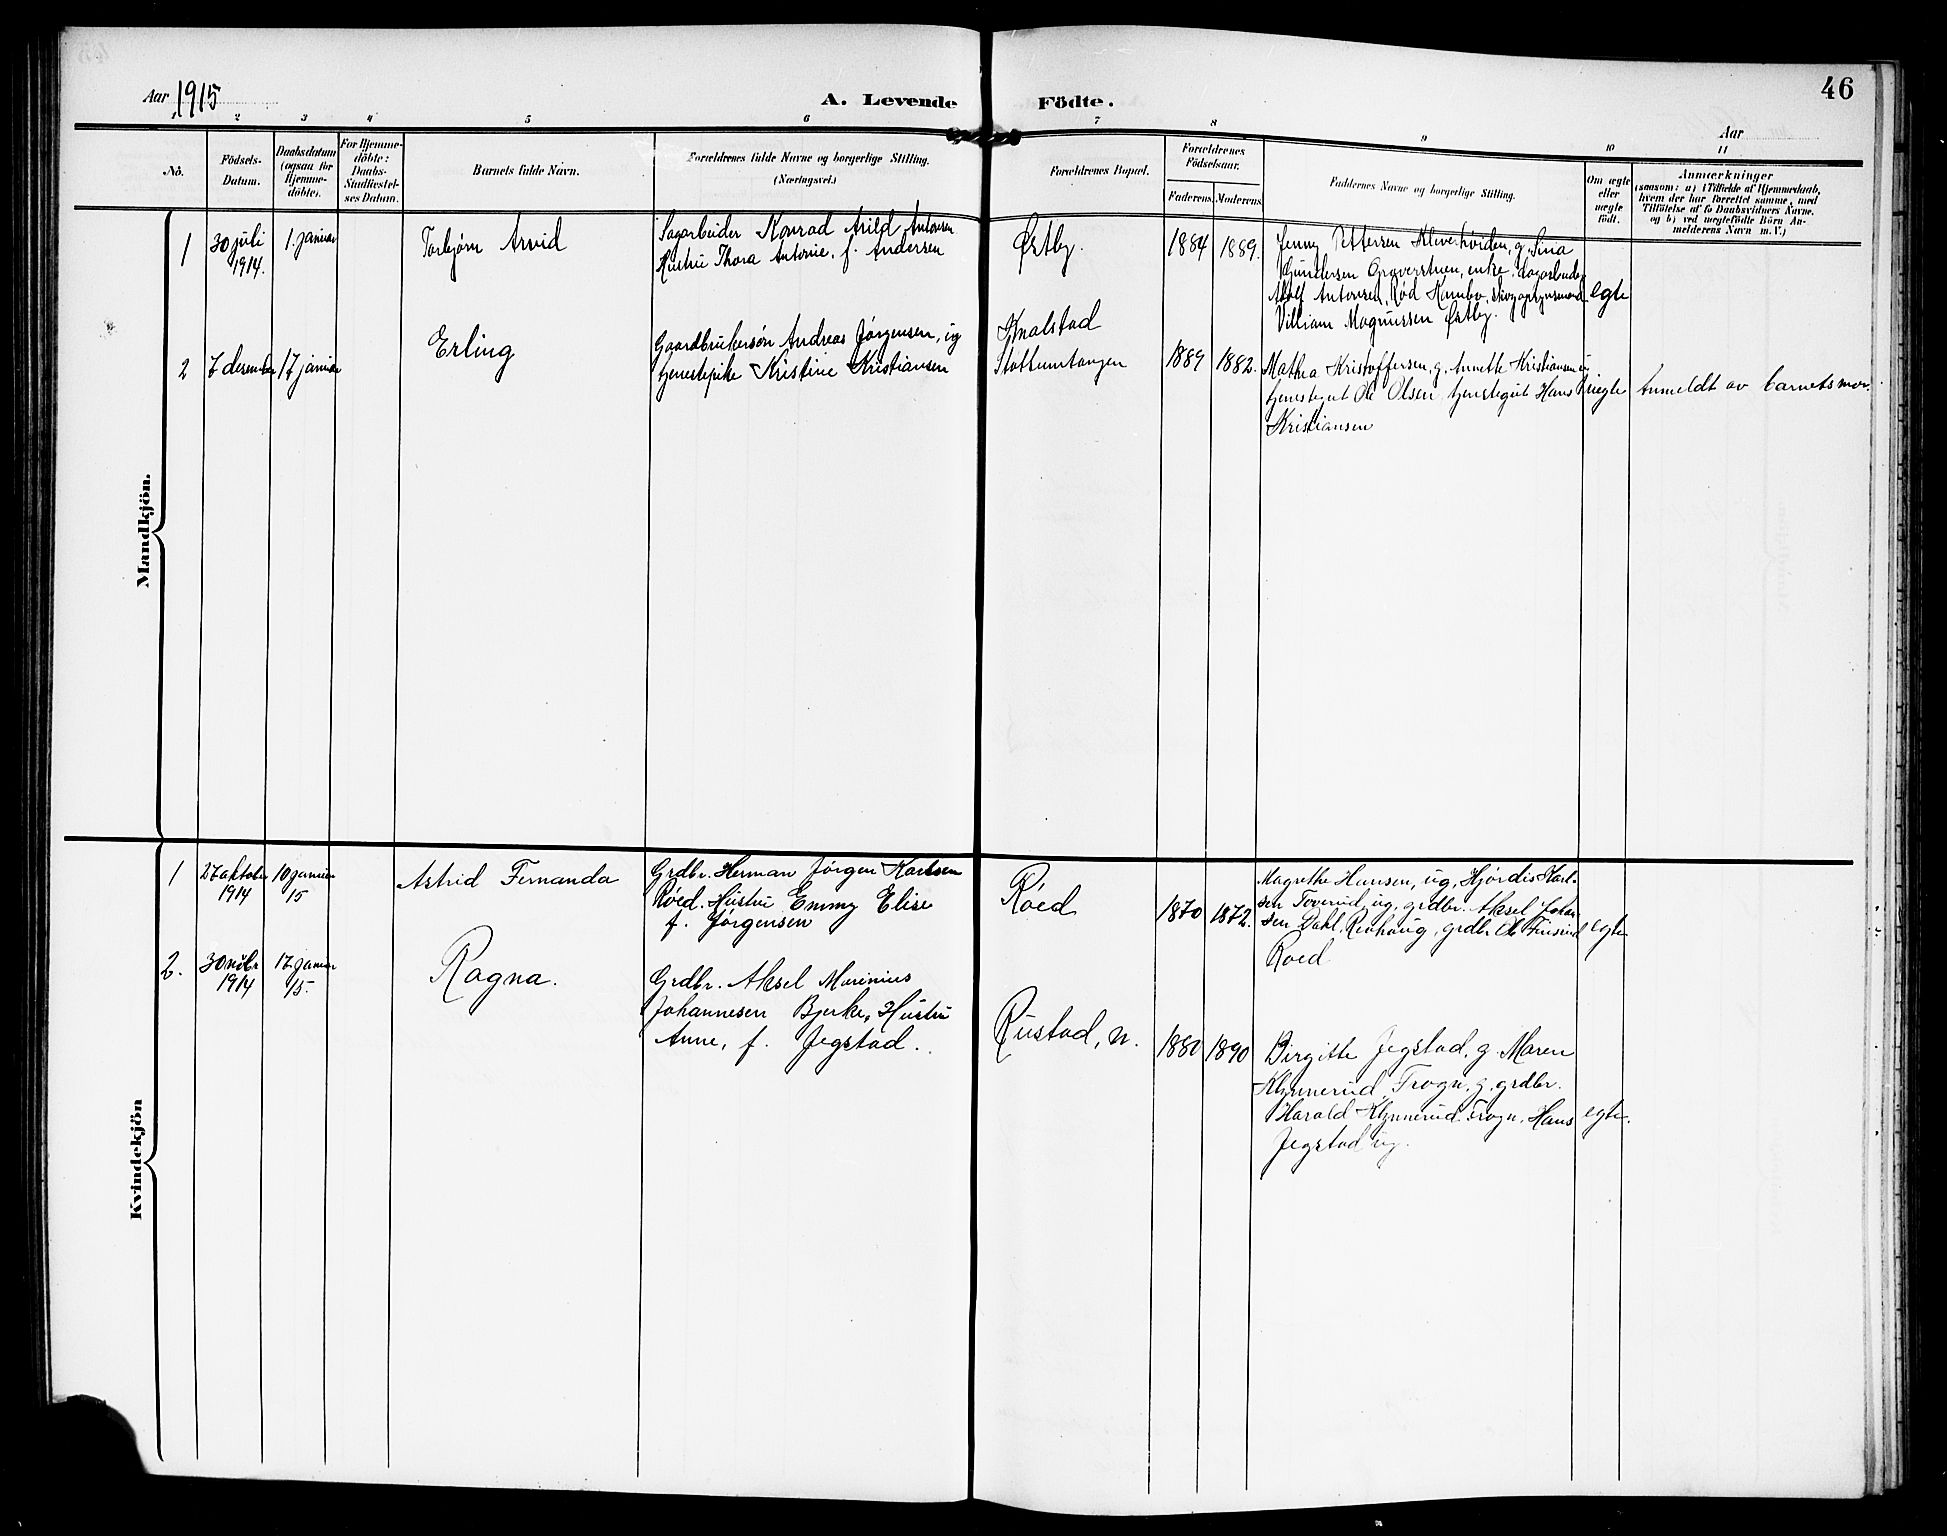 46
Aar 1915
A. Levende Födte.
Aar
1 2 3 4 5 6 7 8 9 10 11
No.
Födsels-
Datum.
Daabsdatum
(ogsaa for
Hjemme-
döbte).
For Hjemme-
döbte:
Daabs-
Stadfæstel-
ses Datum.
Barnets fulde Navn.
Forældrenes fulde Navne og borgerlige Stilling.
(Næringsvei.)
Forældrenes Bopæl.
Forældrenes
Födselsaar.
Faderens. Moderens.
Faddernes Navne og borgerlige Stilling.
Om ægte
eller
uægte
födt.
Anmærkninger
(saasom: a) i Tilfælde af Hjemmedaab,
hvem der har forrettet samme, med
Tilföielse af to Daabsvidners Navne,
og b) ved uægtefödte Börn An-
melderens Navn m. V.)
Mandkjön.
1
30 juli
1914.
1. januar
Torbjørn Arvid
Sagarbeider Konrad Arild Antonsen
Hustru Thora Antonie, f. Andersen
Østby.
1884
1889.
Jenny Pettersen Kleverhøiden, g. Sina
Gundersen Graverstuen, enke, sagarbeider
Adolf Antonsen, Rød Hambo,
Villiam Magnussen Østby.
egte
2
7 december
17 januar
Erling
Gaardbrukersøn Andreas Jørgensen, ug
tjenestepike Kristine Kristiansen
Knalstad
Stottumtangen
1889
1882.
Mathea Kristoffersen, g. Annette Kristiansen ug
tjenestegut Ole Olsen, tjenestegut Hans
Kristiansen
uegte
Anmeldt av barnets mor.
Kvindekjön
1
27 oktober
1914
10 januar
15
Astrid Fernanda
Grdbr. Herman Jørgen Karlsen
Røed. Hustru Emmy Elise
f. Jørgensen
Røed
1870
1872.
Magrethe Hansen, ug, Hjørdis Karl-
sen Toverud, ug, grdbr. Aksel Johan-
sen Dahl, Revhaug, grdbr. Ole
Røed
egte
2.
30 novbr
1914
17 januar
15.
Ragna.
Grdbr. Aksel Marinius
Johannesen Bjerke, Hustru
Anne, f. Jegstad.
Rustad, n.
1880
1890
Birgitte Jegstad, g. Maren
Klynnerud Frogn, g, grdbr.
Harald Klynnerud Frogn, Hans
Jegstad ug.
egte.